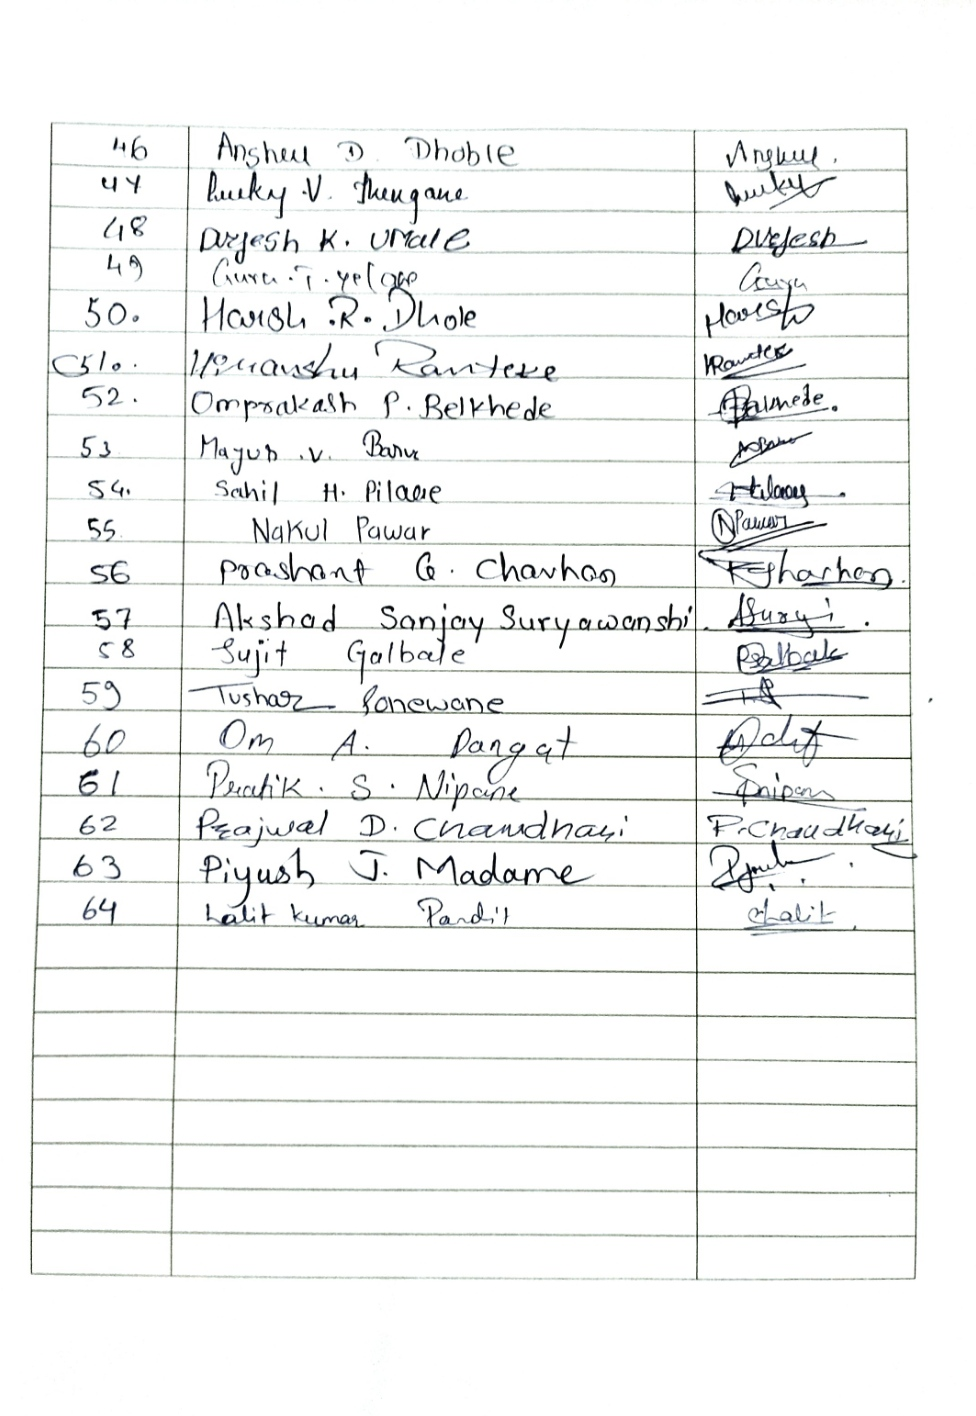 46 Anshul D. Dhoble Anshul.
47 Lucky .V. Thengane Lucky
48 Durjesh K. Umale Durjesh
49 Gaurav .T. Gaurav
50. Harsh .R. Dhole Harsh
51. Himanshu Ramteke HRamteke
52. Omprakash P. Belkhede
53 Mayur .V.
54. Sahil H. Pilare
55 Nakul Pawar NPawar
56 Prashant G. Chavhan
57 Akshad Sanjay Suryawanshi.
58 Sujit Galbale
59 Tushar Sonewane
60 Om A. Dangat
61 Pratik . S . Nipane
62 Prajwal D. Chaudhari P.Chaudhari
63 Piyush J. Madame
64 Lalit kumar Pandit Lalit